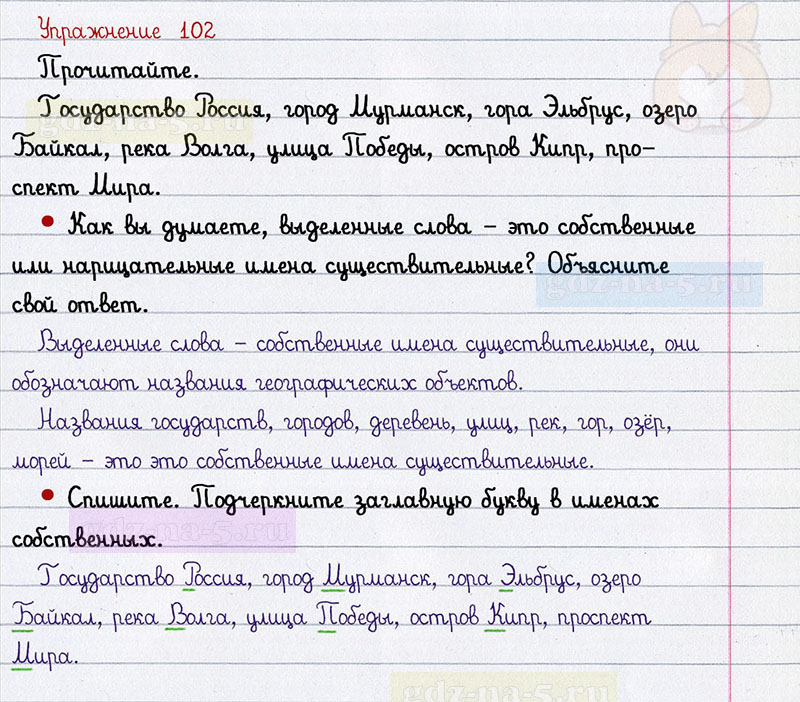 Упражнение 102
Прочитайте.
Государство Россия, город Мурманск, гора Эльбрус, озеро
Байкал, река Волга, улица Победы, остров Кипр, про-
спект Мира.
• Как вы думаете, выделенные слова – это собственные
или нарицательные имена существительные? Объясните
свой ответ.
Выделенные слова – собственные имена существительные, они
обозначают названия географических объектов.
Названия государств, городов, деревень, улиц, рек, гор, озёр,
морей – это это собственные имена существительные.
• Спишите. Подчеркните заглавную букву в именах
собственных.
Государство Россия, город Мурманск, гора Эльбрус, озеро
Байкал, река Волга, улица Победы, остров Кипр, проспект
Мира.
gdz-na-5.ru
gdz-na-5.ru
gdz-na-5.ru
gdz-na-5.ru